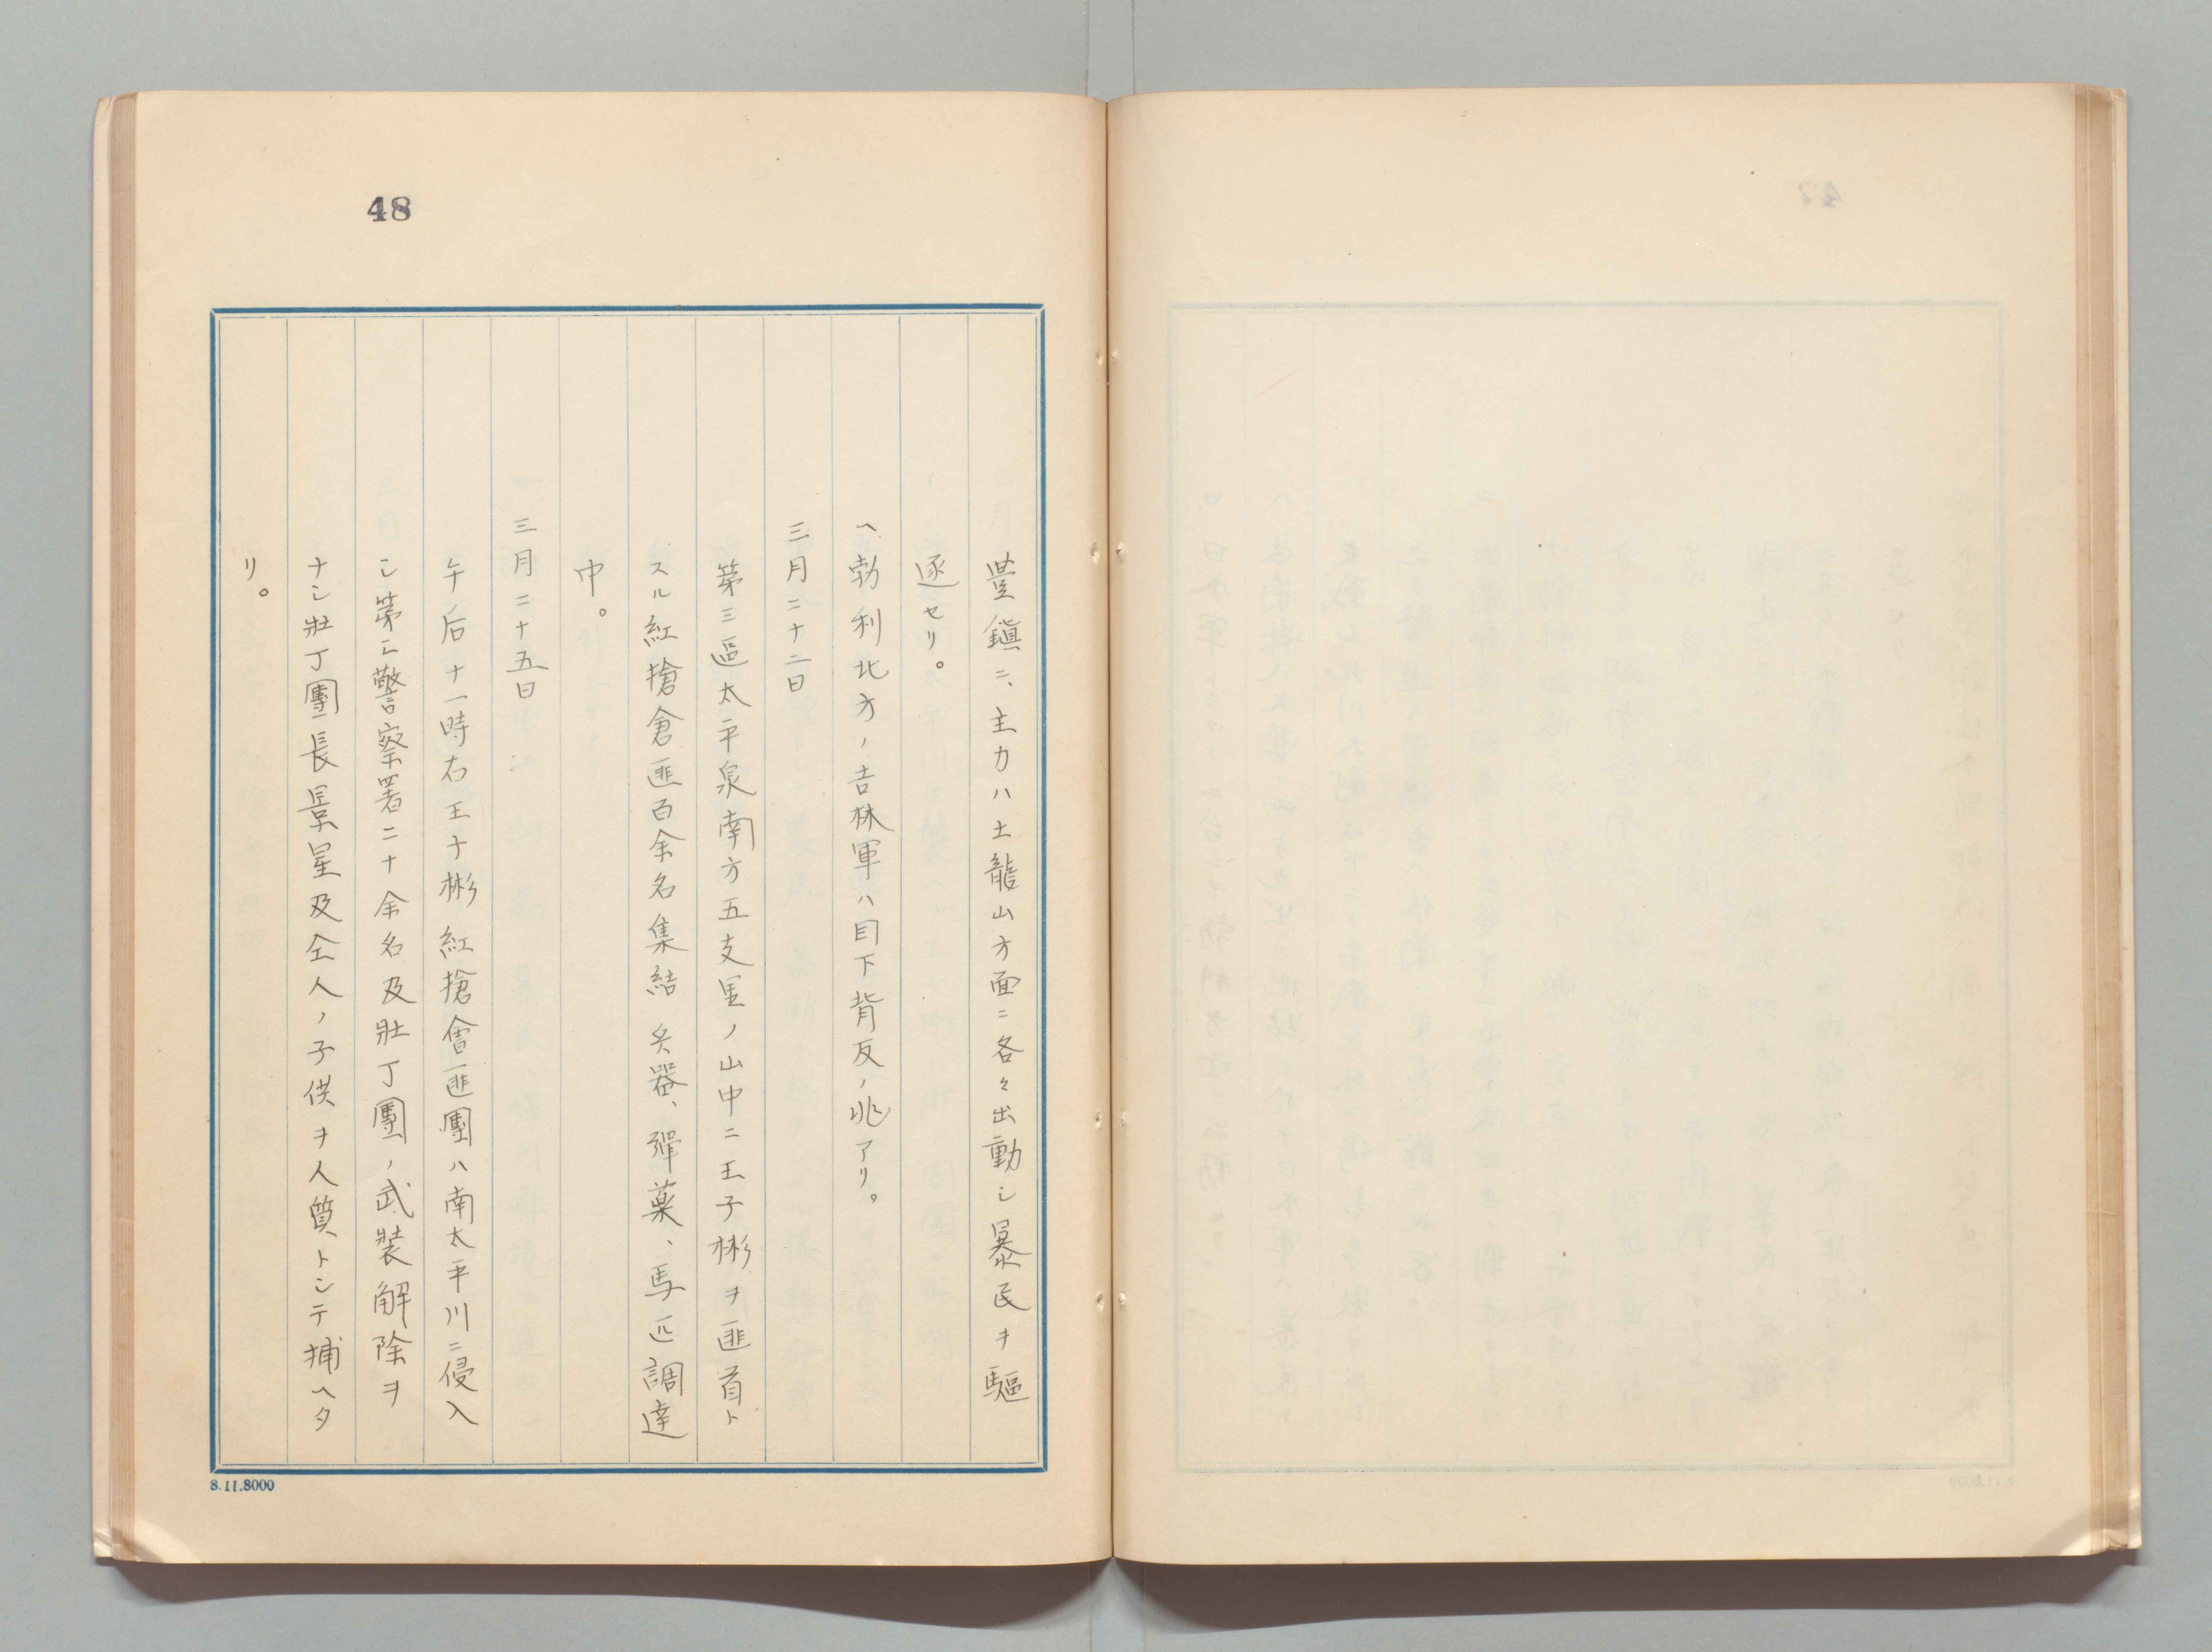 48
豊鎮ニ、主力ハ土龍山方面ニ各々出動シ暴民ヲ驅
逐セリ。
ヘ、勃利北方ノ吉林軍ハ目下背反ノ兆アリ。
三月二十二日
第三區太平泉南方五支里ノ山中ニ王子彬ヲ匪首ト
スル紅搶會匪百余名集結 兵器、彈薬、馬匹調達
中。
三月二十五日
午后十一時右王子彬紅搶會匪團ハ南太平川ニ侵入
シ第三警察署二十余名及壯丁團ノ武装解除ヲ
ナシ壯丁團長景星及仝人ノ子供ヲ人質トシテ捕ヘタ
リ。
8.11.8000